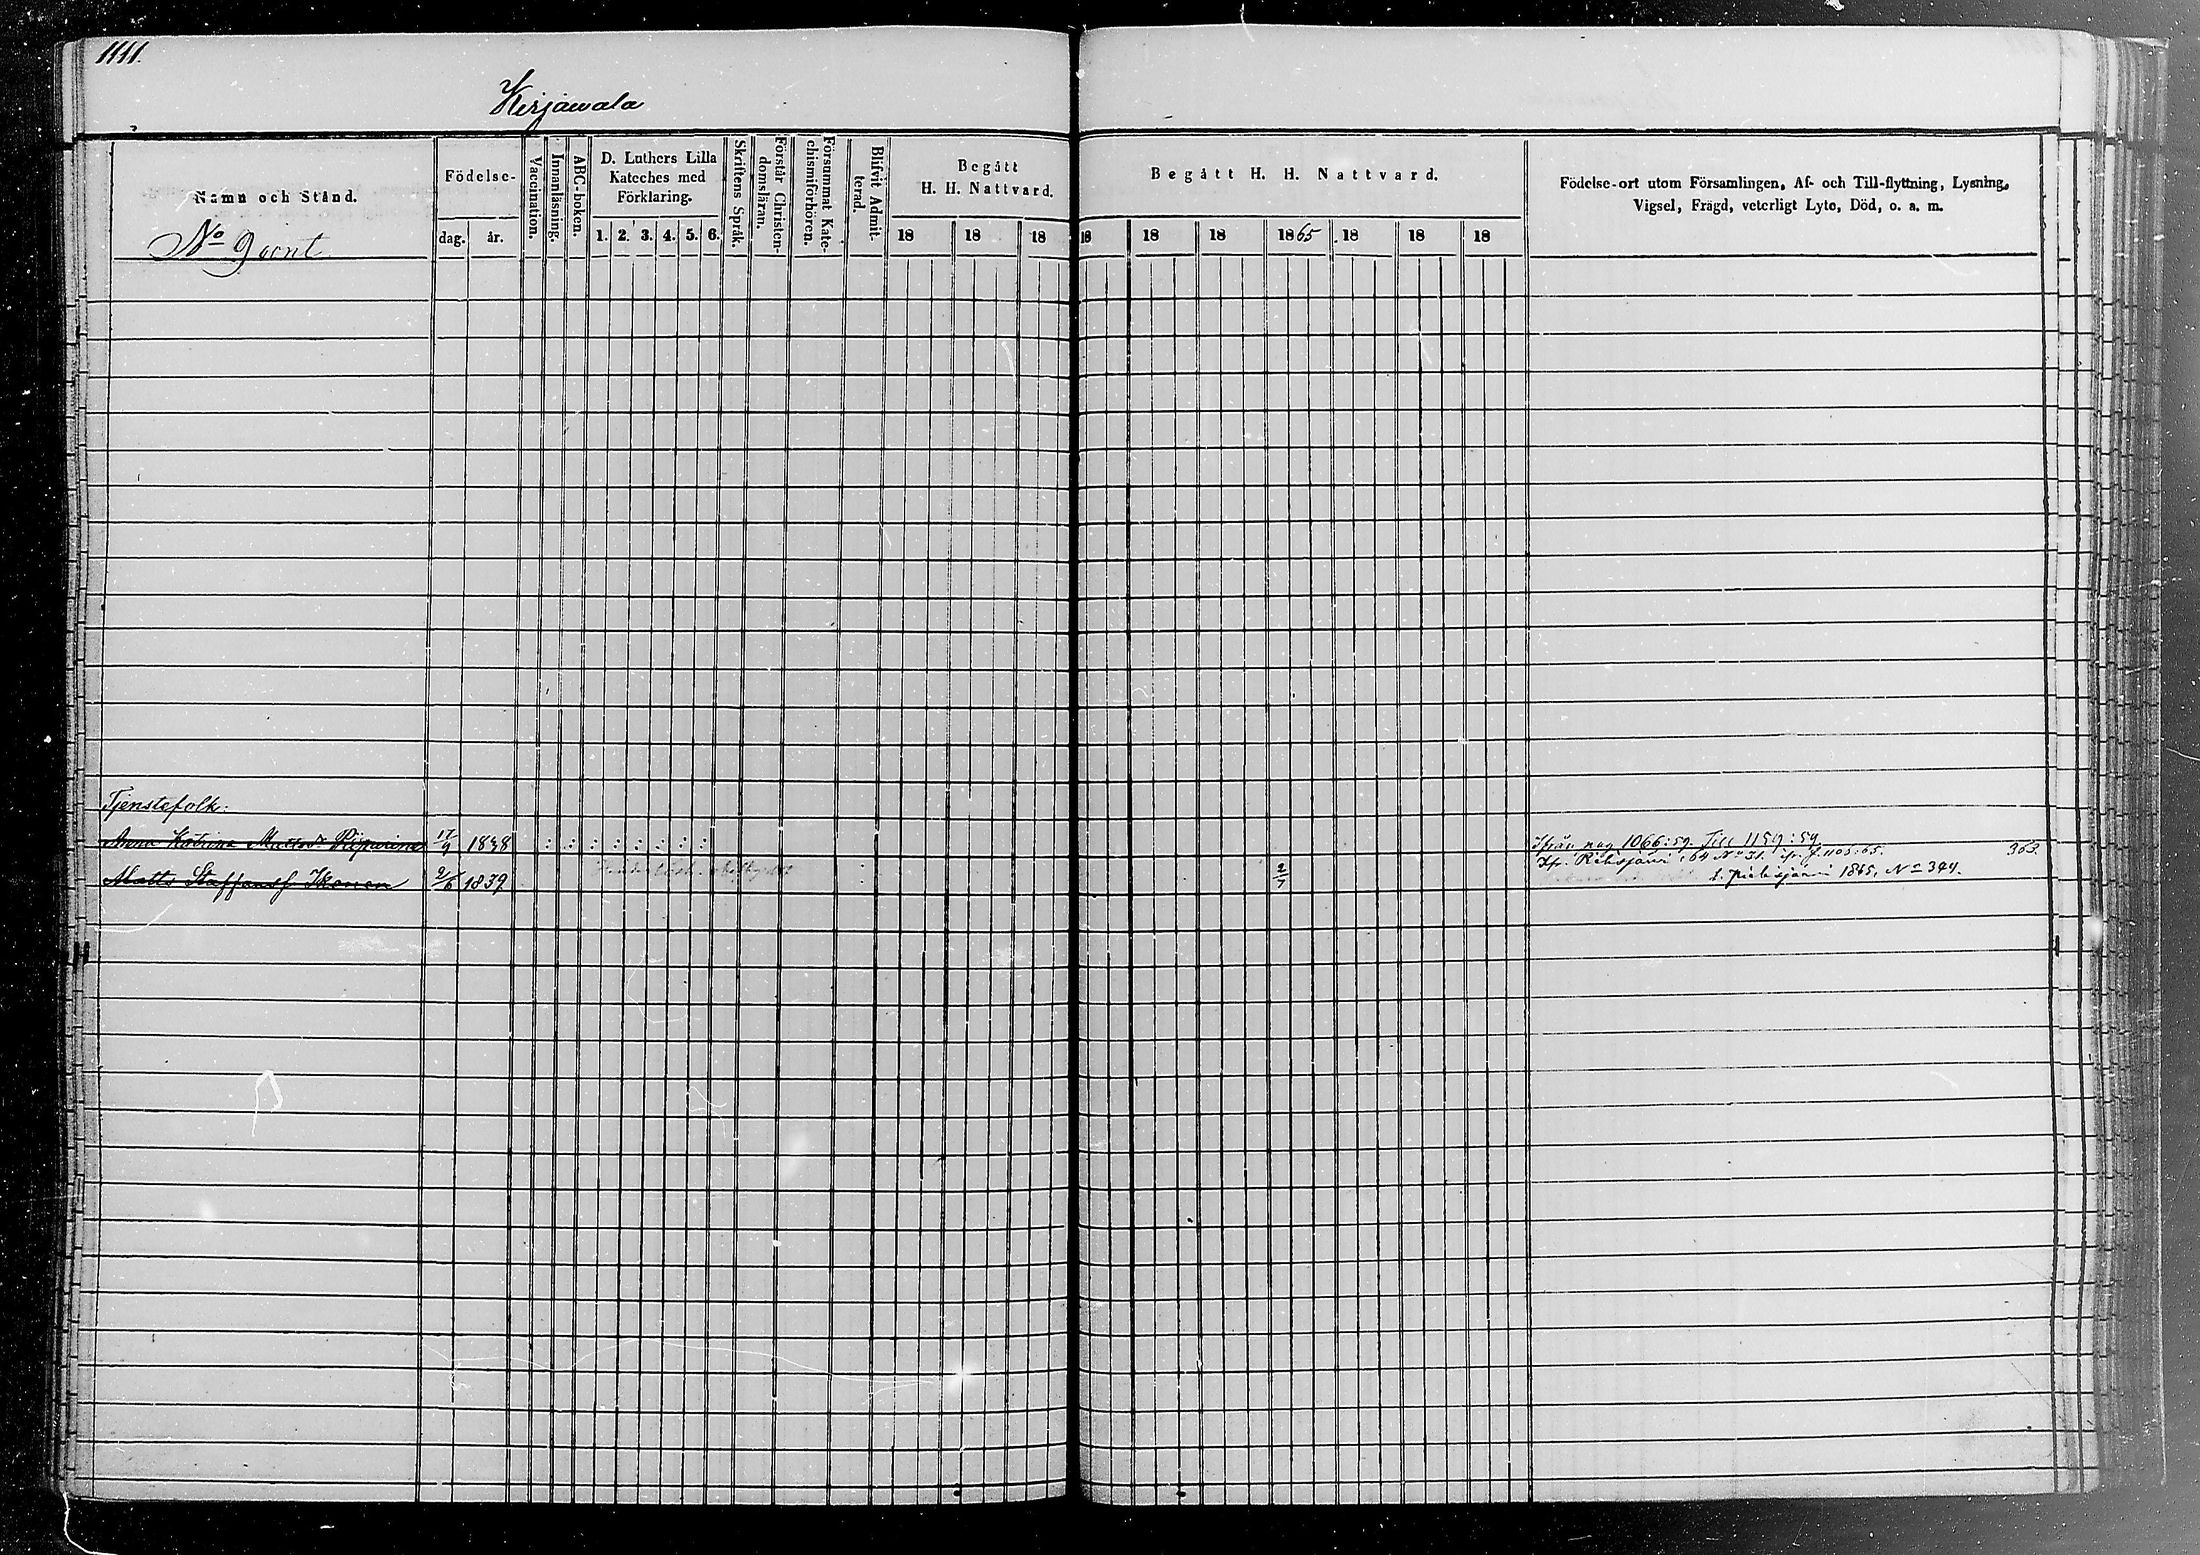 1111.
Kirjawala
Namn och Stånd.
No 9 cont
Födelse-
dag. år.
Vaccination.
Innanläsning.
ABC-boken.
D. Luthers Lilla
Kateches med
Förklaring.
1. 2. 3. 4. 5. 6.
Skriftens Språk.
Förstår Christen-
domsläran.
Försummat Kate-
chismiförhören.
Blifvit Admit-
terad.
Begått
H. H. Nattvard.
18 18 18
Begått H. H. Nattvard.
18 18 18 1865 18 18 18
Födelse-ort utom Församlingen, Af- och Till-flyttning, Lysning,
Vigsel, Frägd, veterligt Lyte, Död, o. a. m.
Tjenstefolk:
Anna Katrina Mattsdr 17/9 1838 : : : : : : : : Ifrån pag 1066:59. Till 1159:59
Matts Staffanss Ikonen 2/6 1839 : 2/7 64 No 31. 1105:65. 363.
1865, No 394.